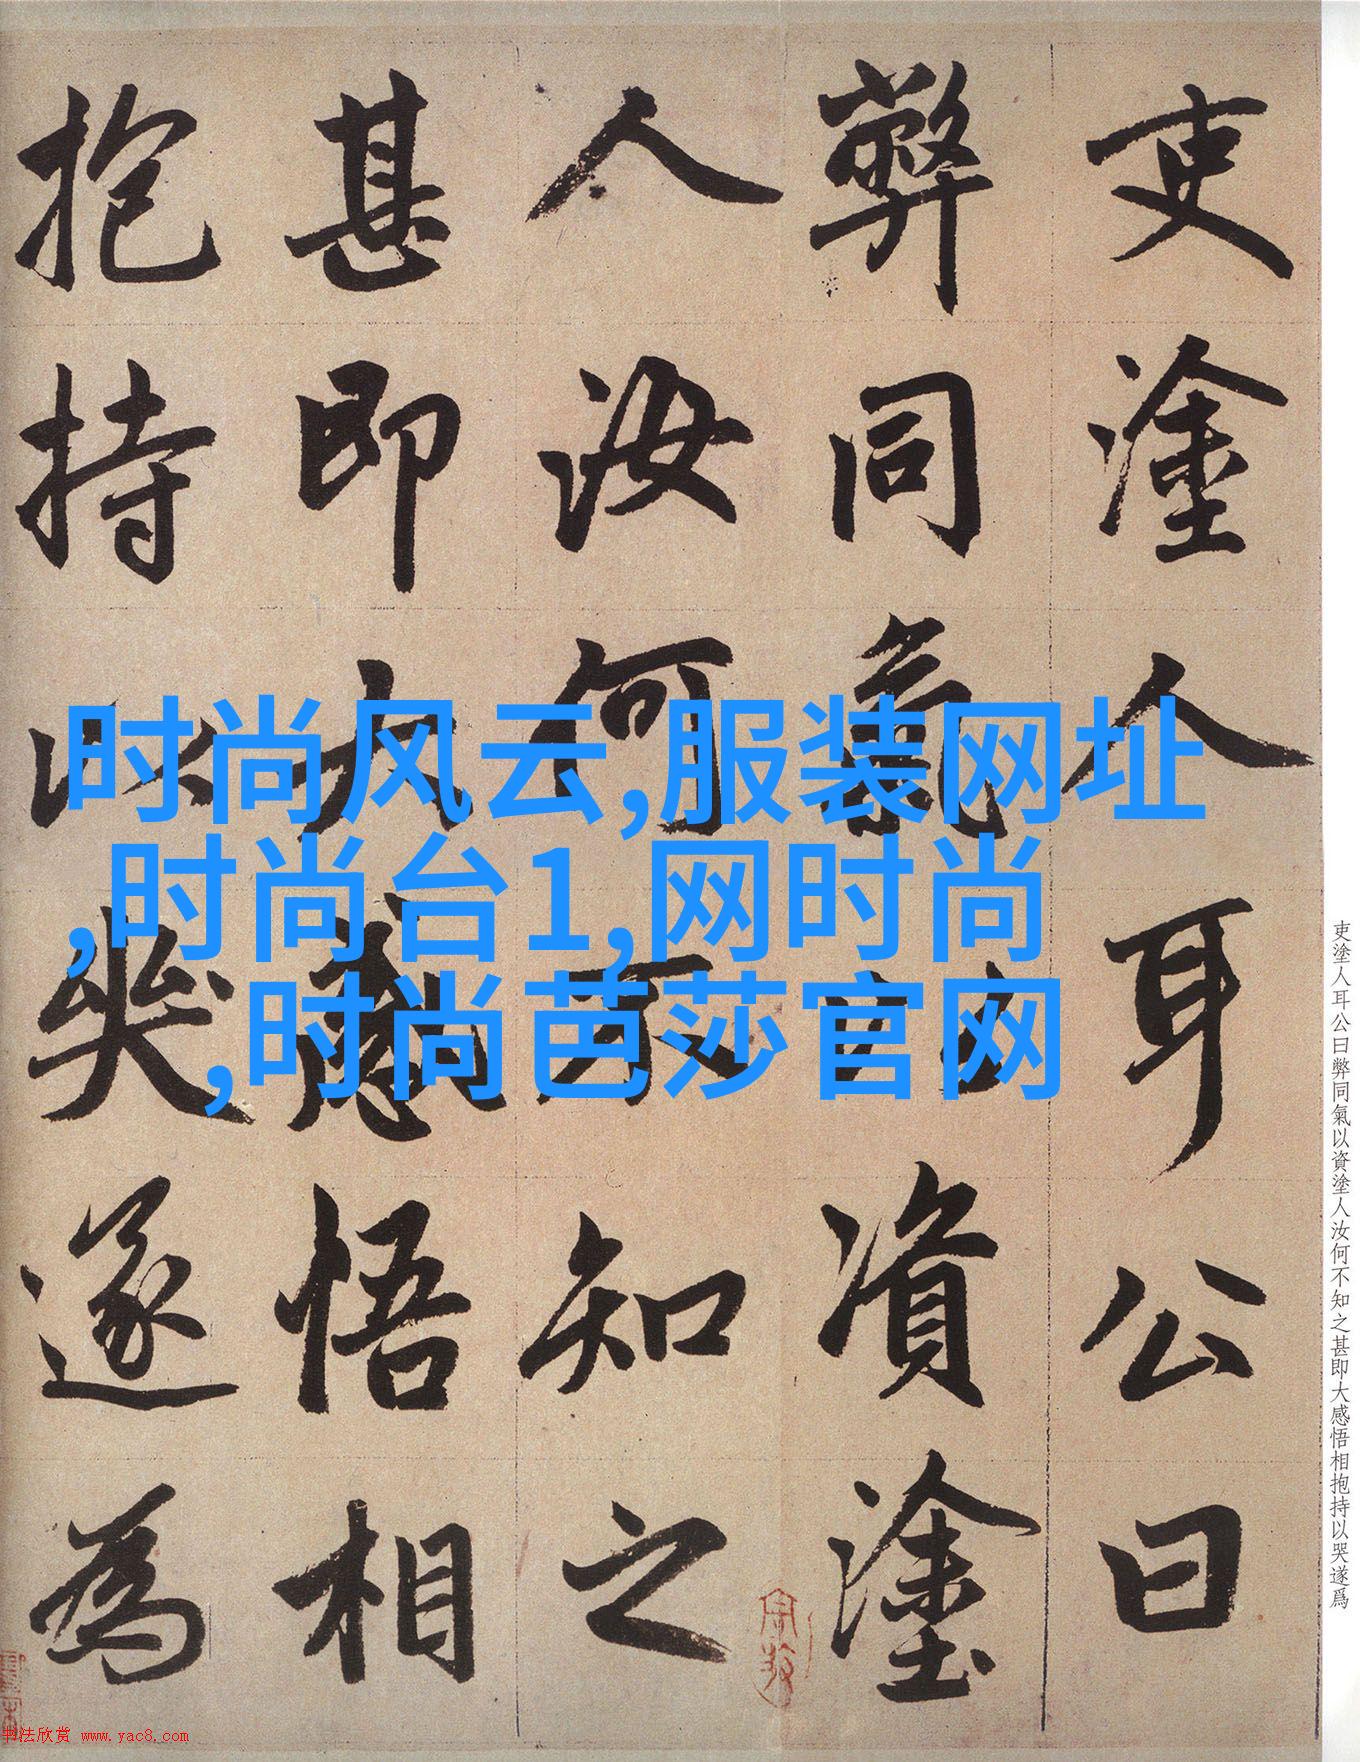 吏塗人耳公曰
弊同氣以資塗
人汝何不知之
甚即大感悟相
抱持以哭遂為
时尚风云,服装网址
,时尚台1,网时尚
,时尚芭莎官网
吏塗人耳公曰弊同氣以資塗人汝何不知之甚即大感悟相抱持以哭遂爲
书法欣赏 www.yac8.com